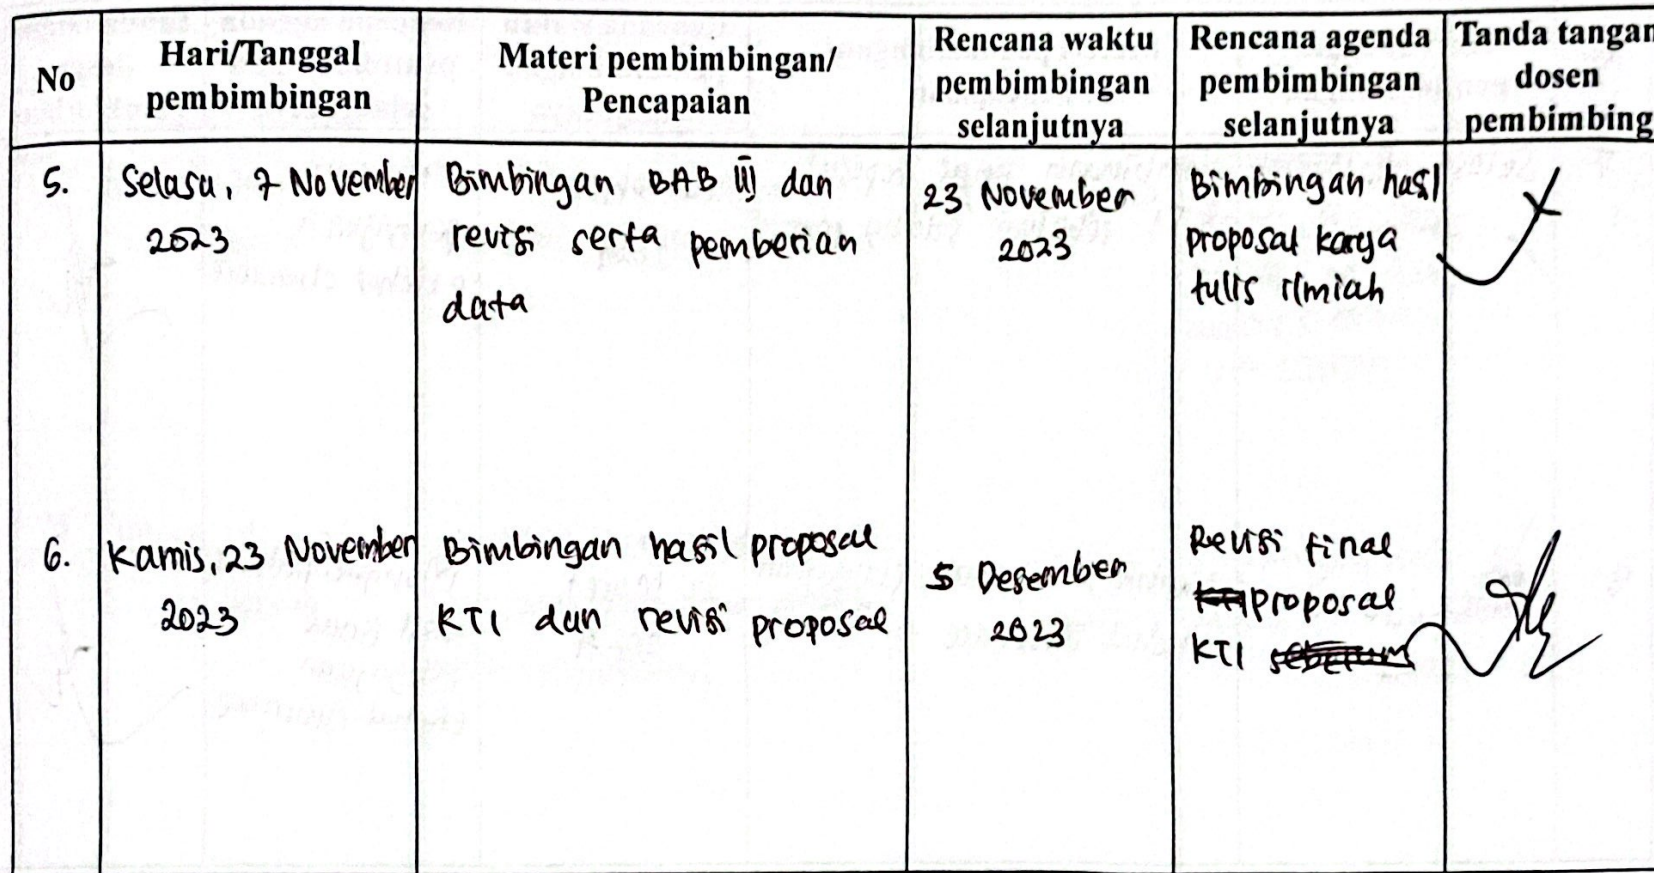 No
Hari/Tanggal
pembimbingan
Materi pembimbingan/
Pencapaian
Rencana waktu
pembimbingan
selanjutnya
Rencana agenda
pembimbingan
selanjutnya
Tanda tangan
dosen
pembimbing
5.
Selasa, 7 November
2023
Bimbingan BAB III dan
revisi serta pemberian
data
23 November
2023
Bimbingan hasil
proposal karya
tulis ilmiah
6.
Kamis, 23 November
2023
Bimbingan hasil proposal
KTI dan revisi proposal
5 Desember
2023
Revisi final
proposal
KTI